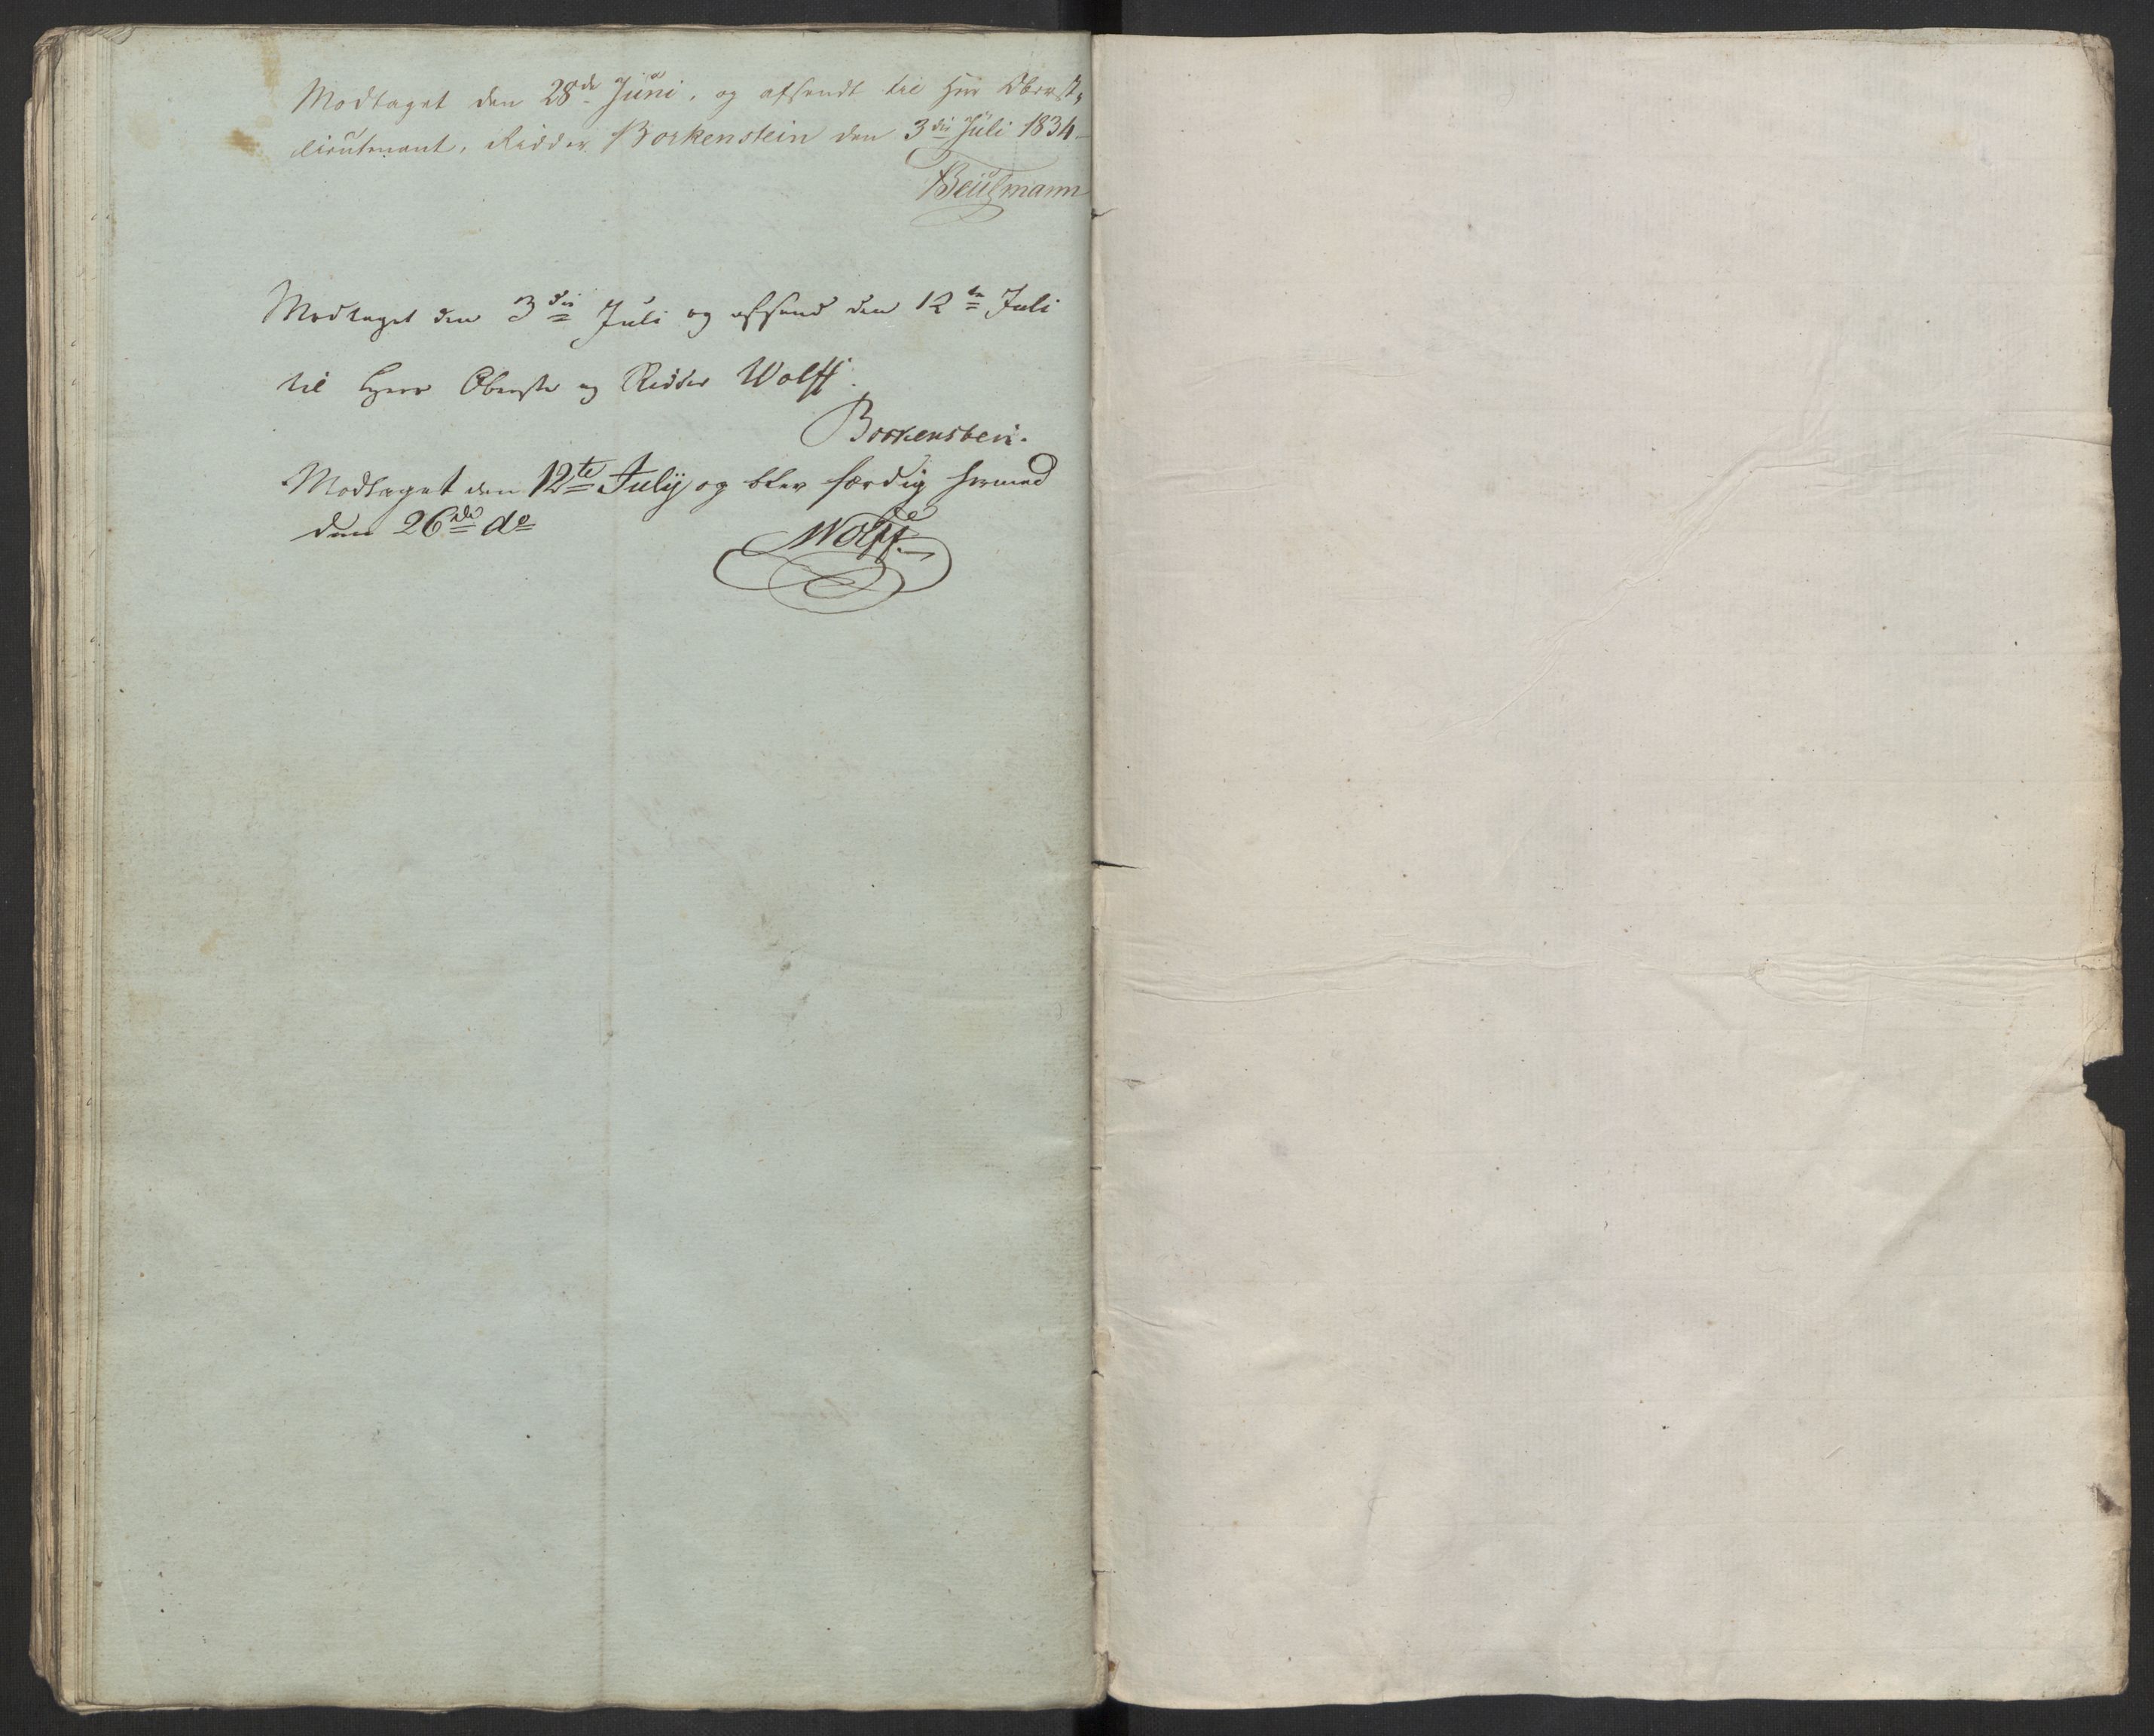 Modtaget den 28de Juni, og afsendt til Herr Oberst,
lieutenant, Ridder Borkenstein den 3die Juli 1834
Modtaget den 3die Juli og afsend den 12te Juli
til Herr Oberste og Ridder Wolff.
Borkenstein.
Modtaget den 12te July og blev færdig hermed
den 26de do
Wolff.